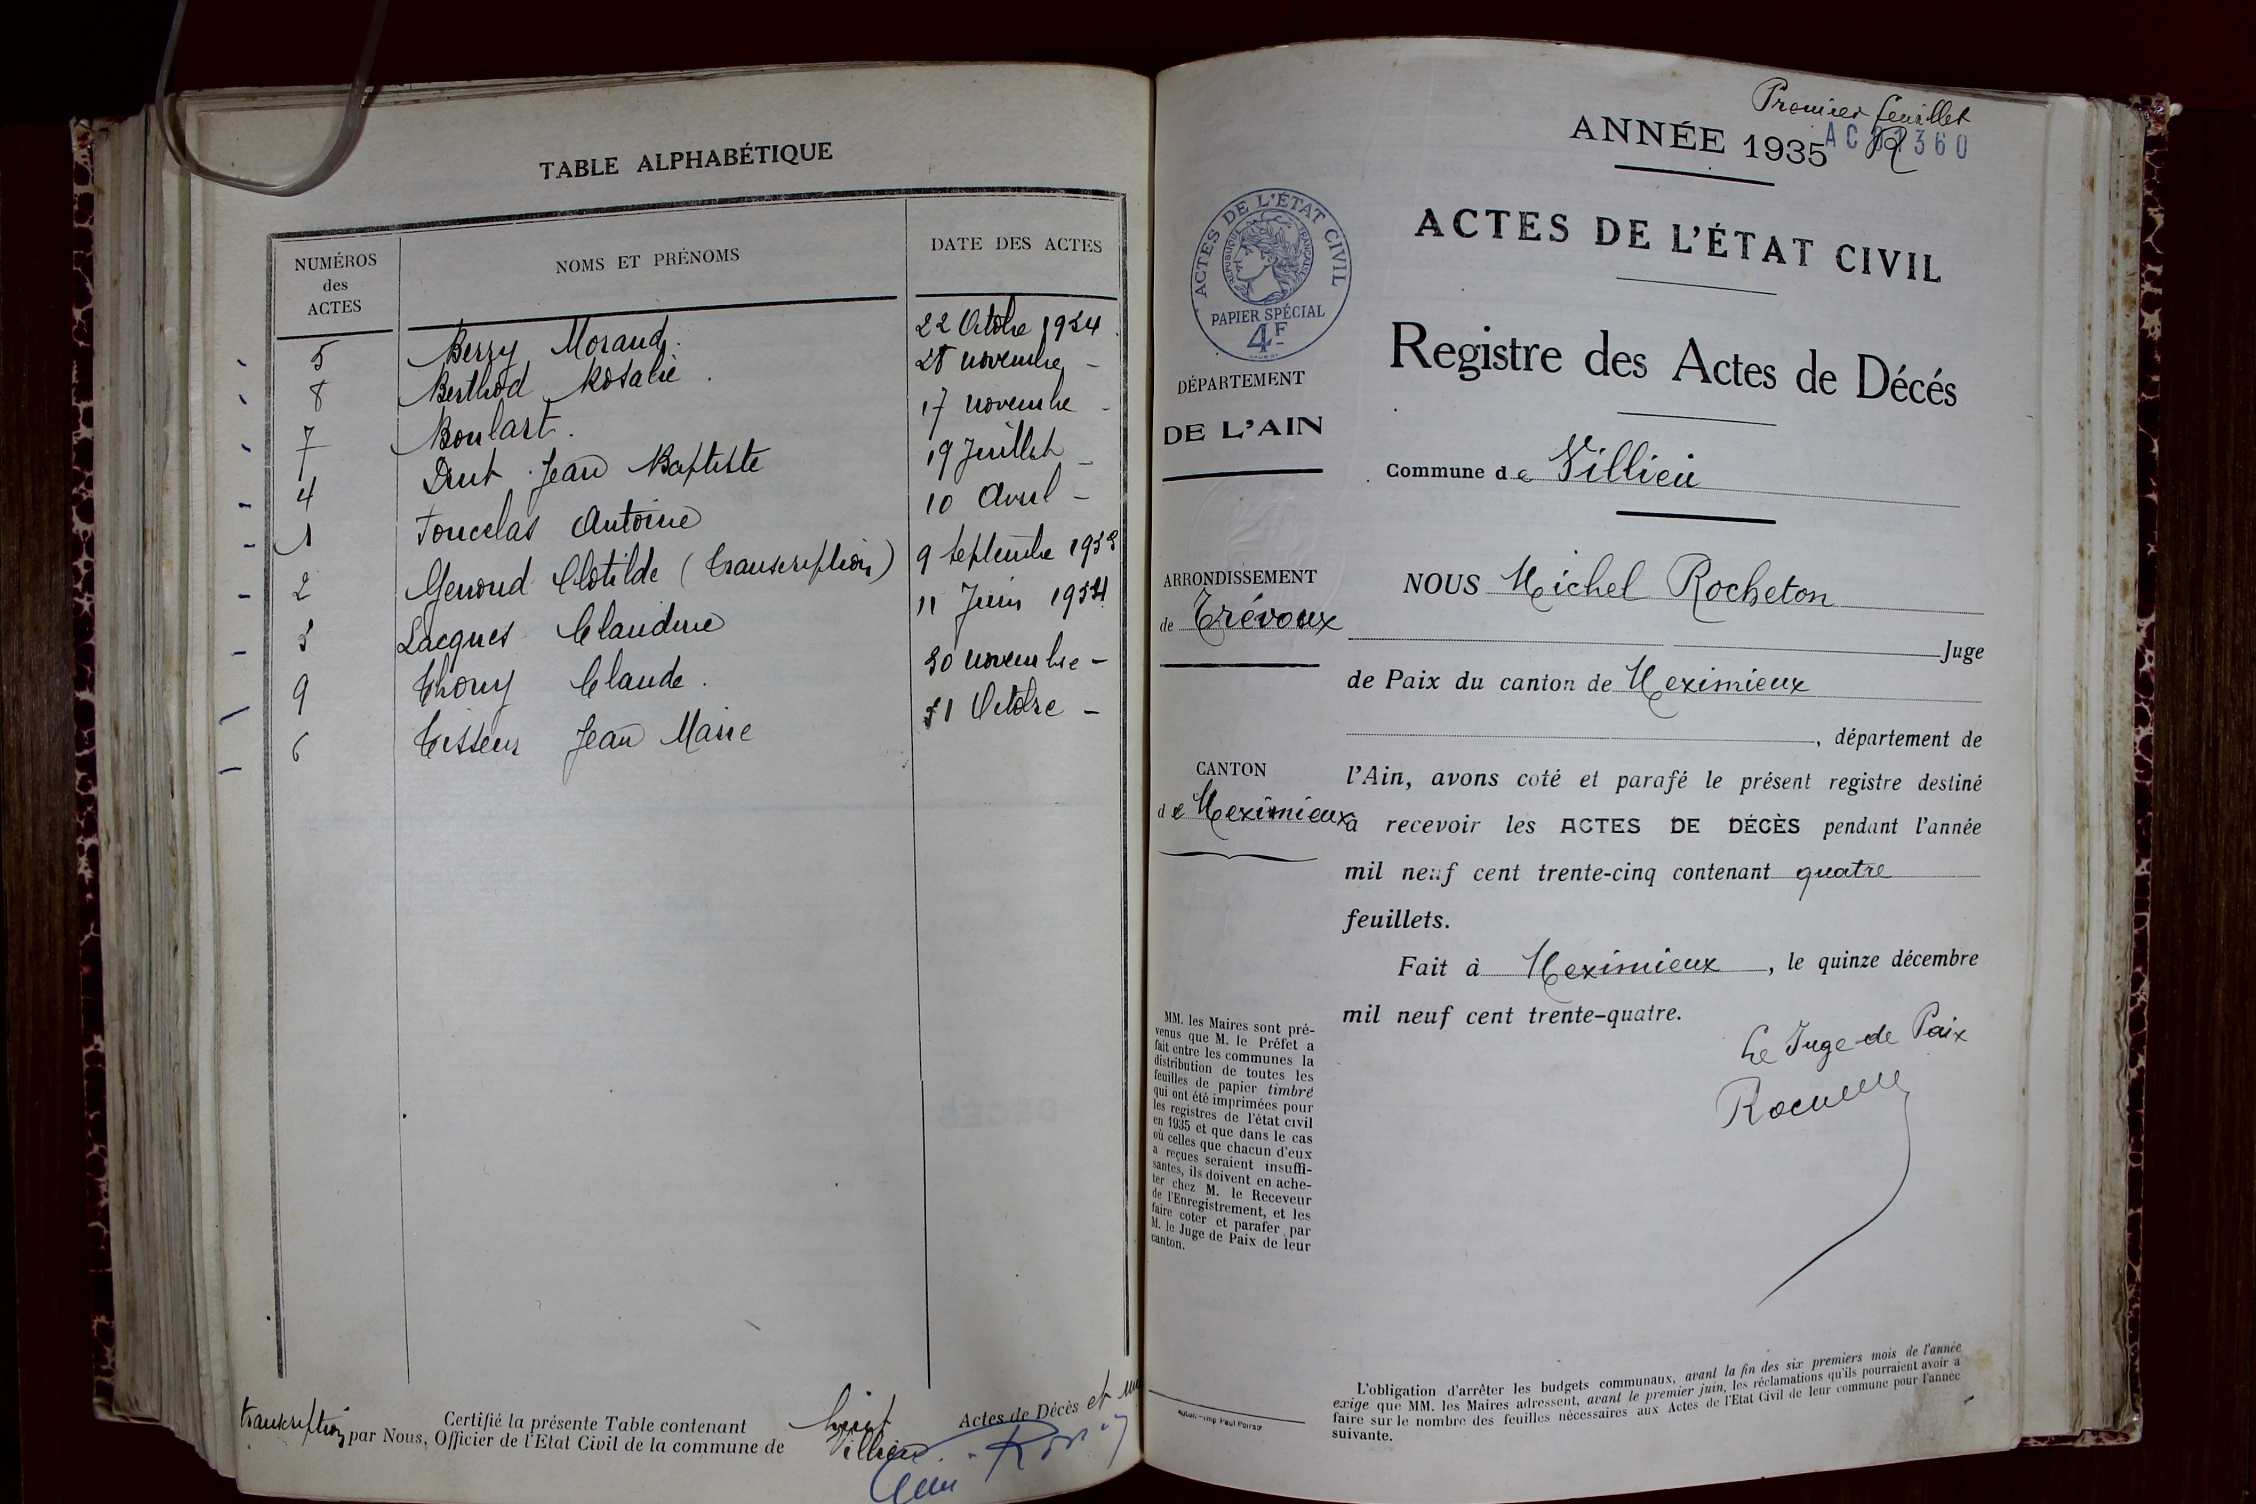 TABLE ALPHABÉTIQUE
NUMÉROS
des
ACTES
NOMS ET PRÉNOMS
DATE DES ACTES
5 Berzy Morand. 22 Octobre 1934.
8 Berthod Rosalie. 28 novembre –
7 Boulart. 17 novembre -
4 Drut Jean Baptiste 19 Juillet –
1 Foncelas Antoine 10 Avril –
2 Genoud Clotilde (transcription) 9 Septembre 1933
3 Lacques Claudine 11 Juin 1934
9 Thony Claude. 30 novembre –
6 Tisseur Jean Marie 31 Octobre –
Certifié la présente Table contenant huit Actes de Décès et une
transcription par Nous, Officier de l'Etat Civil de la commune de Villieu
Premier feuillet
ANNÉE 1935
ACTES DE L'ÉTAT CIVIL
RÉPUBLIQUE FRANÇAISE
PAPIER SPÉCIAL
4F
ACTES DE L'ÉTAT CIVIL
Registre des Actes de Décés
Commune de Villieu
DÉPARTEMENT
DE L'AIN
ARRONDISSEMENT
de Trévoux
CANTON
de Meximieux
MM. les Maires sont pré-
venus que M. le Préfet a
fait entre les communes la
distribution de toutes les
feuilles de papier timbré
qui ont été imprimées pour
les registres de l'état civil
en 1935 et que dans le cas
où celles que chacun d'eux
a reçues seraient insuffi-
santes, ils doivent en ache-
ter chez M. le Receveur
de l'Enregistrement, et les
faire coter et parafer par
M. le Juge de Paix de leur
canton.
NOUS Michel Rocheton
Juge
de Paix du canton de Meximieux
, département de
l'Ain, avons coté et parafé le présent registre destiné
à recevoir les ACTES DE DÉCÈS pendant l'année
mil neuf cent trente-cinq contenant quatre
feuillets.
Fait à Meximieux, le quinze décembre
mil neuf cent trente-quatre.
Le Juge de Paix
L'obligation d'arrêter les budgets communaux, avant la fin des six premiers mois de l'année
exige que MM. les Maires adressent, avant le premier juin, les réclamations qu'ils pourraient avoir à
faire sur le nombre des feuilles nécessaires aux Actes de l'Etat Civil de leur commune pour l'année
suivante.